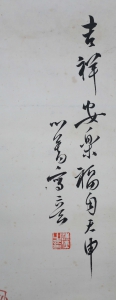 吉祥安樂福自天申
心畬寫意